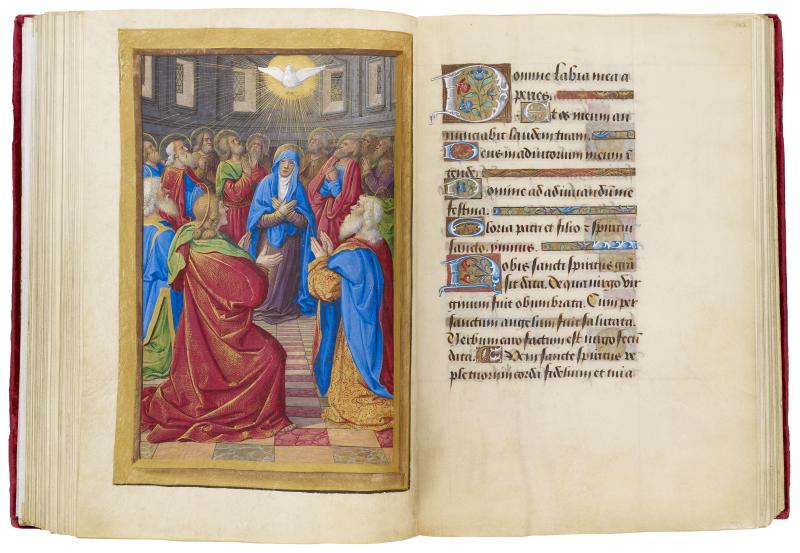 Domine labia mea a
peries. Et os meum an
nunciabit laudem tuam.
Deus in adiutorium meum in
tende. Domine ad adiuvandum me
festina.
Gloria patri et filio et spiritui
sancto. ymnus.
Nobis sancti spiritus gra
sit data. De qua virgo vir
ginum fuit obumbrata. Cum per
sanctum angelum fuit salutata.
Verbum caro factum est virgo fecun
data. Veni sancte spiritus re
ple tuorum corda fidelium et tui a